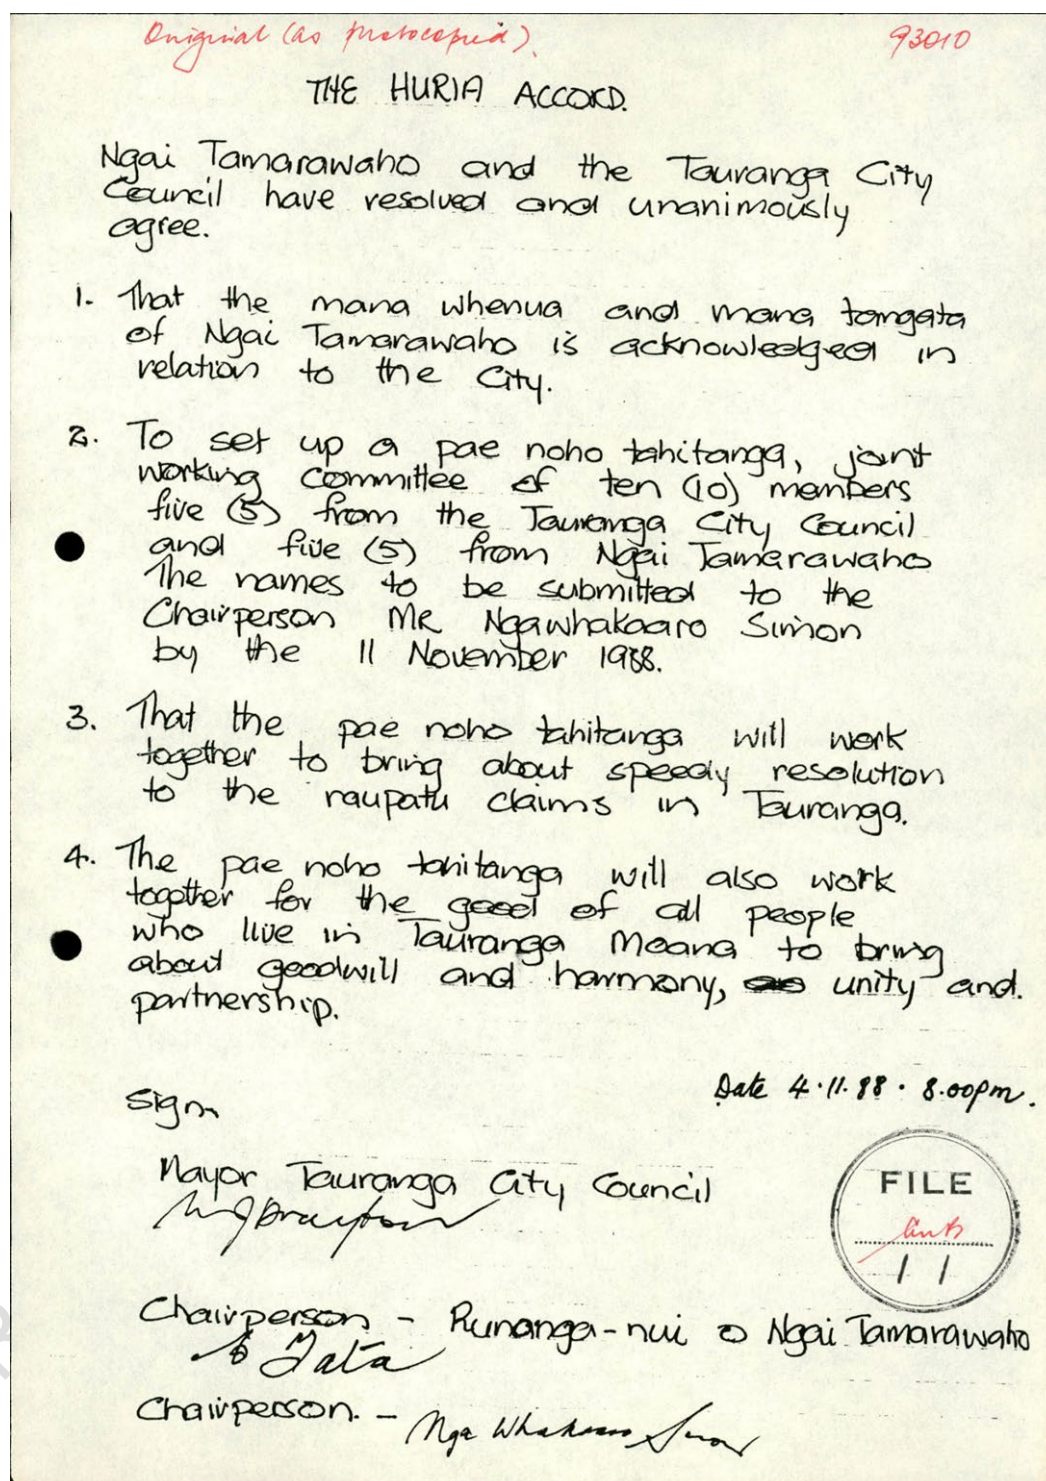 Original (as photocopied).
93010
THE HURIA ACCORD.
Ngai Tamarawaho and the Tauranga City
Council have resolved and unanimously
agree.
1. That the mana whenua and mana tangata
of Ngai Tamarawaho is acknowledged in
relation to the City.
2. To set up a pae noho tahitanga, joint
working committee of ten (10) members
five (5) from the Tauranga City Council
and five (5) from Ngai Tamarawaho
The names to be submitted to the
Chairperson MR Ngawhakaaro Simon
by the 11 November 1988.
3. That the pae noho tahitanga will work
together to bring about speedy resolution
to the raupatu claims in Tauranga.
4. The pae noho tahitanga will also work
together for the good of all people
who live in Tauranga Moana to bring
about goodwill and harmony, unity and
partnership.
Date 4.11.88. 8.00pm.
Sign
Mayor Tauranga City Council
FILE
11
Chairperson - Runanga-nui o Ngai Tamarawaho
Tata
Chairperson. - Nga Whakaaro Simon